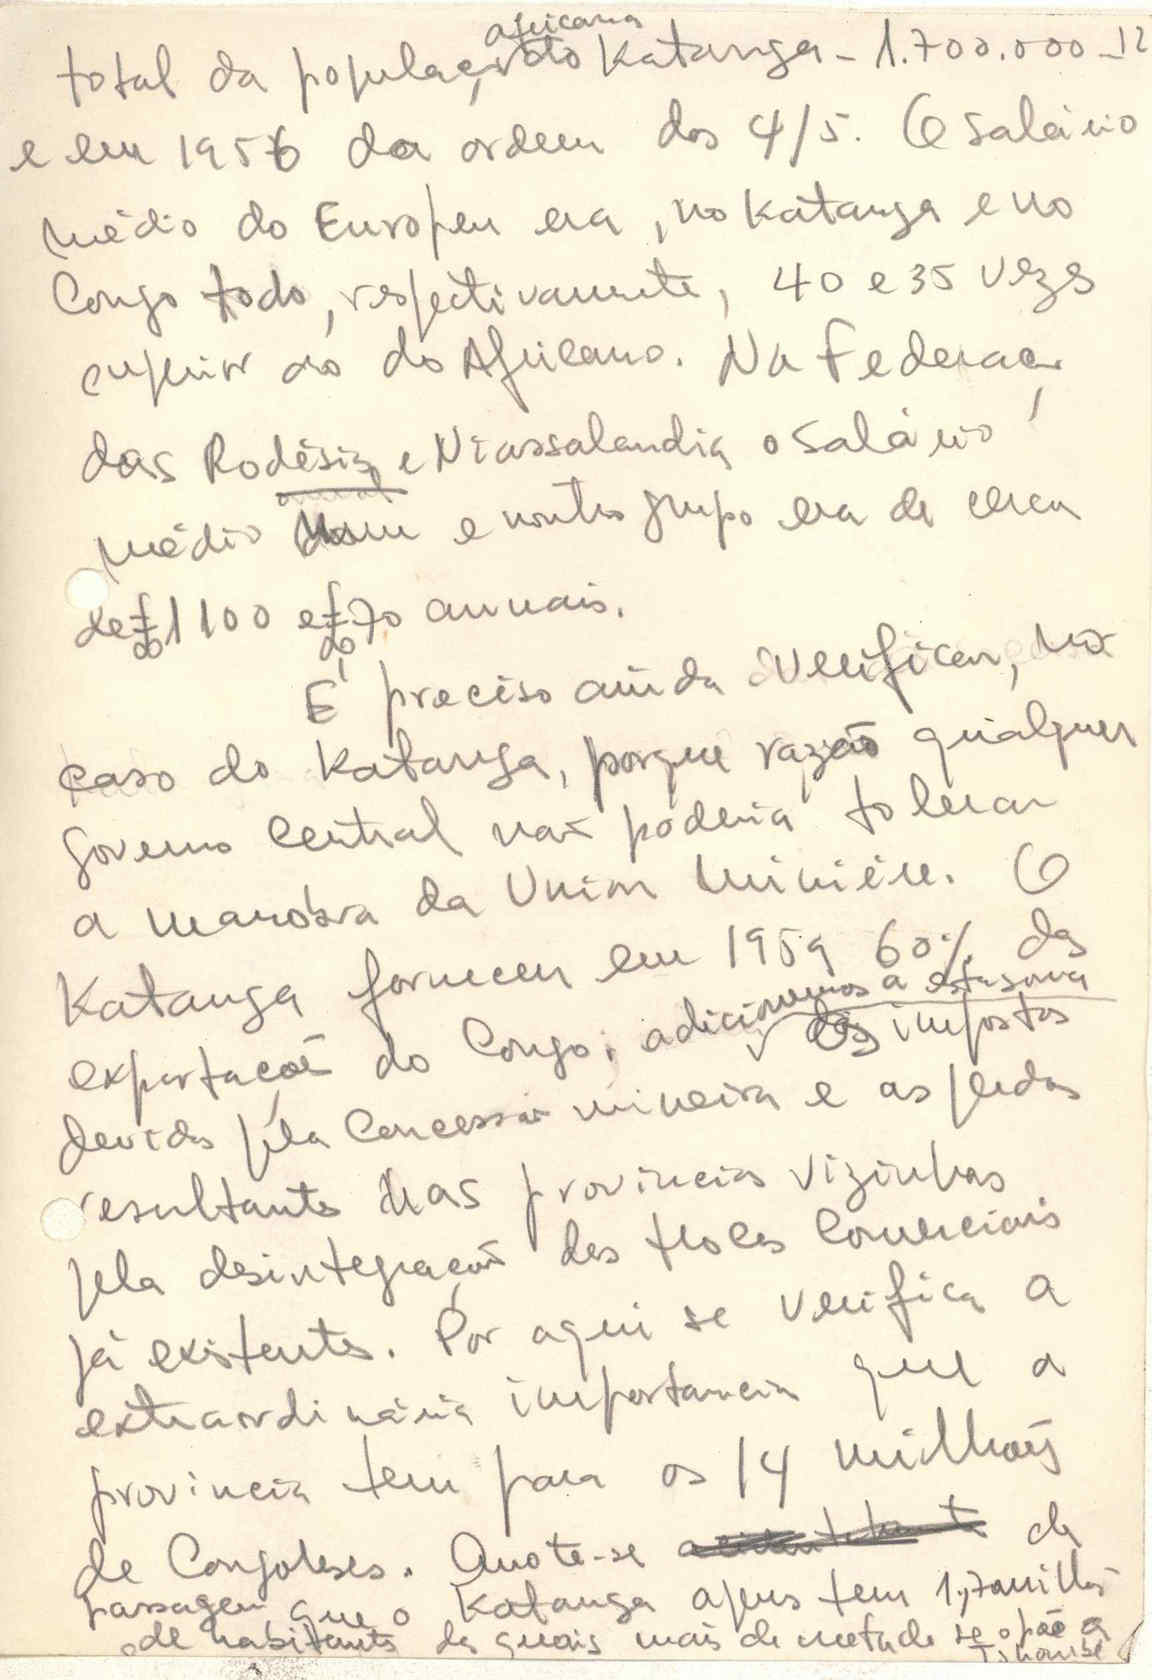 africana
total da população do Katanga - 1.700.000 - 12
e em 1956 da ordem dos 4/5. O salário
médio do Europeu era, no Katanga e no
Congo todo, respectivamente, 40 e 35 vezes
superior ao do Africano. Na Federação
das Rodésias e Niassalandia o salário
médio num e noutro grupo era de cerca
de £ 1100 e £ 70 anuais.
É preciso ainda verificar, no
caso do Katanga, porque razão qualquer
governo central não poderia tolerar
a manobra da Union Minière. O
Katanga forneceu em 1959 60% das
exportações do Congo; adicionemos a esta soma os impostos
devidos pela concessão mineira e as perdas
resultantes nas provincias vizinhas
pela desintegração das trocas comerciais
já existentes. Por aqui se verifica a
extraordinária importancia que a
provincia tem para os 14 milhões
de Congoleses. Anote-se de
passagem que o Katanga apenas tem 1,7 milhões
de habitantes dos quais mais de metade se opõe a
Tshombé